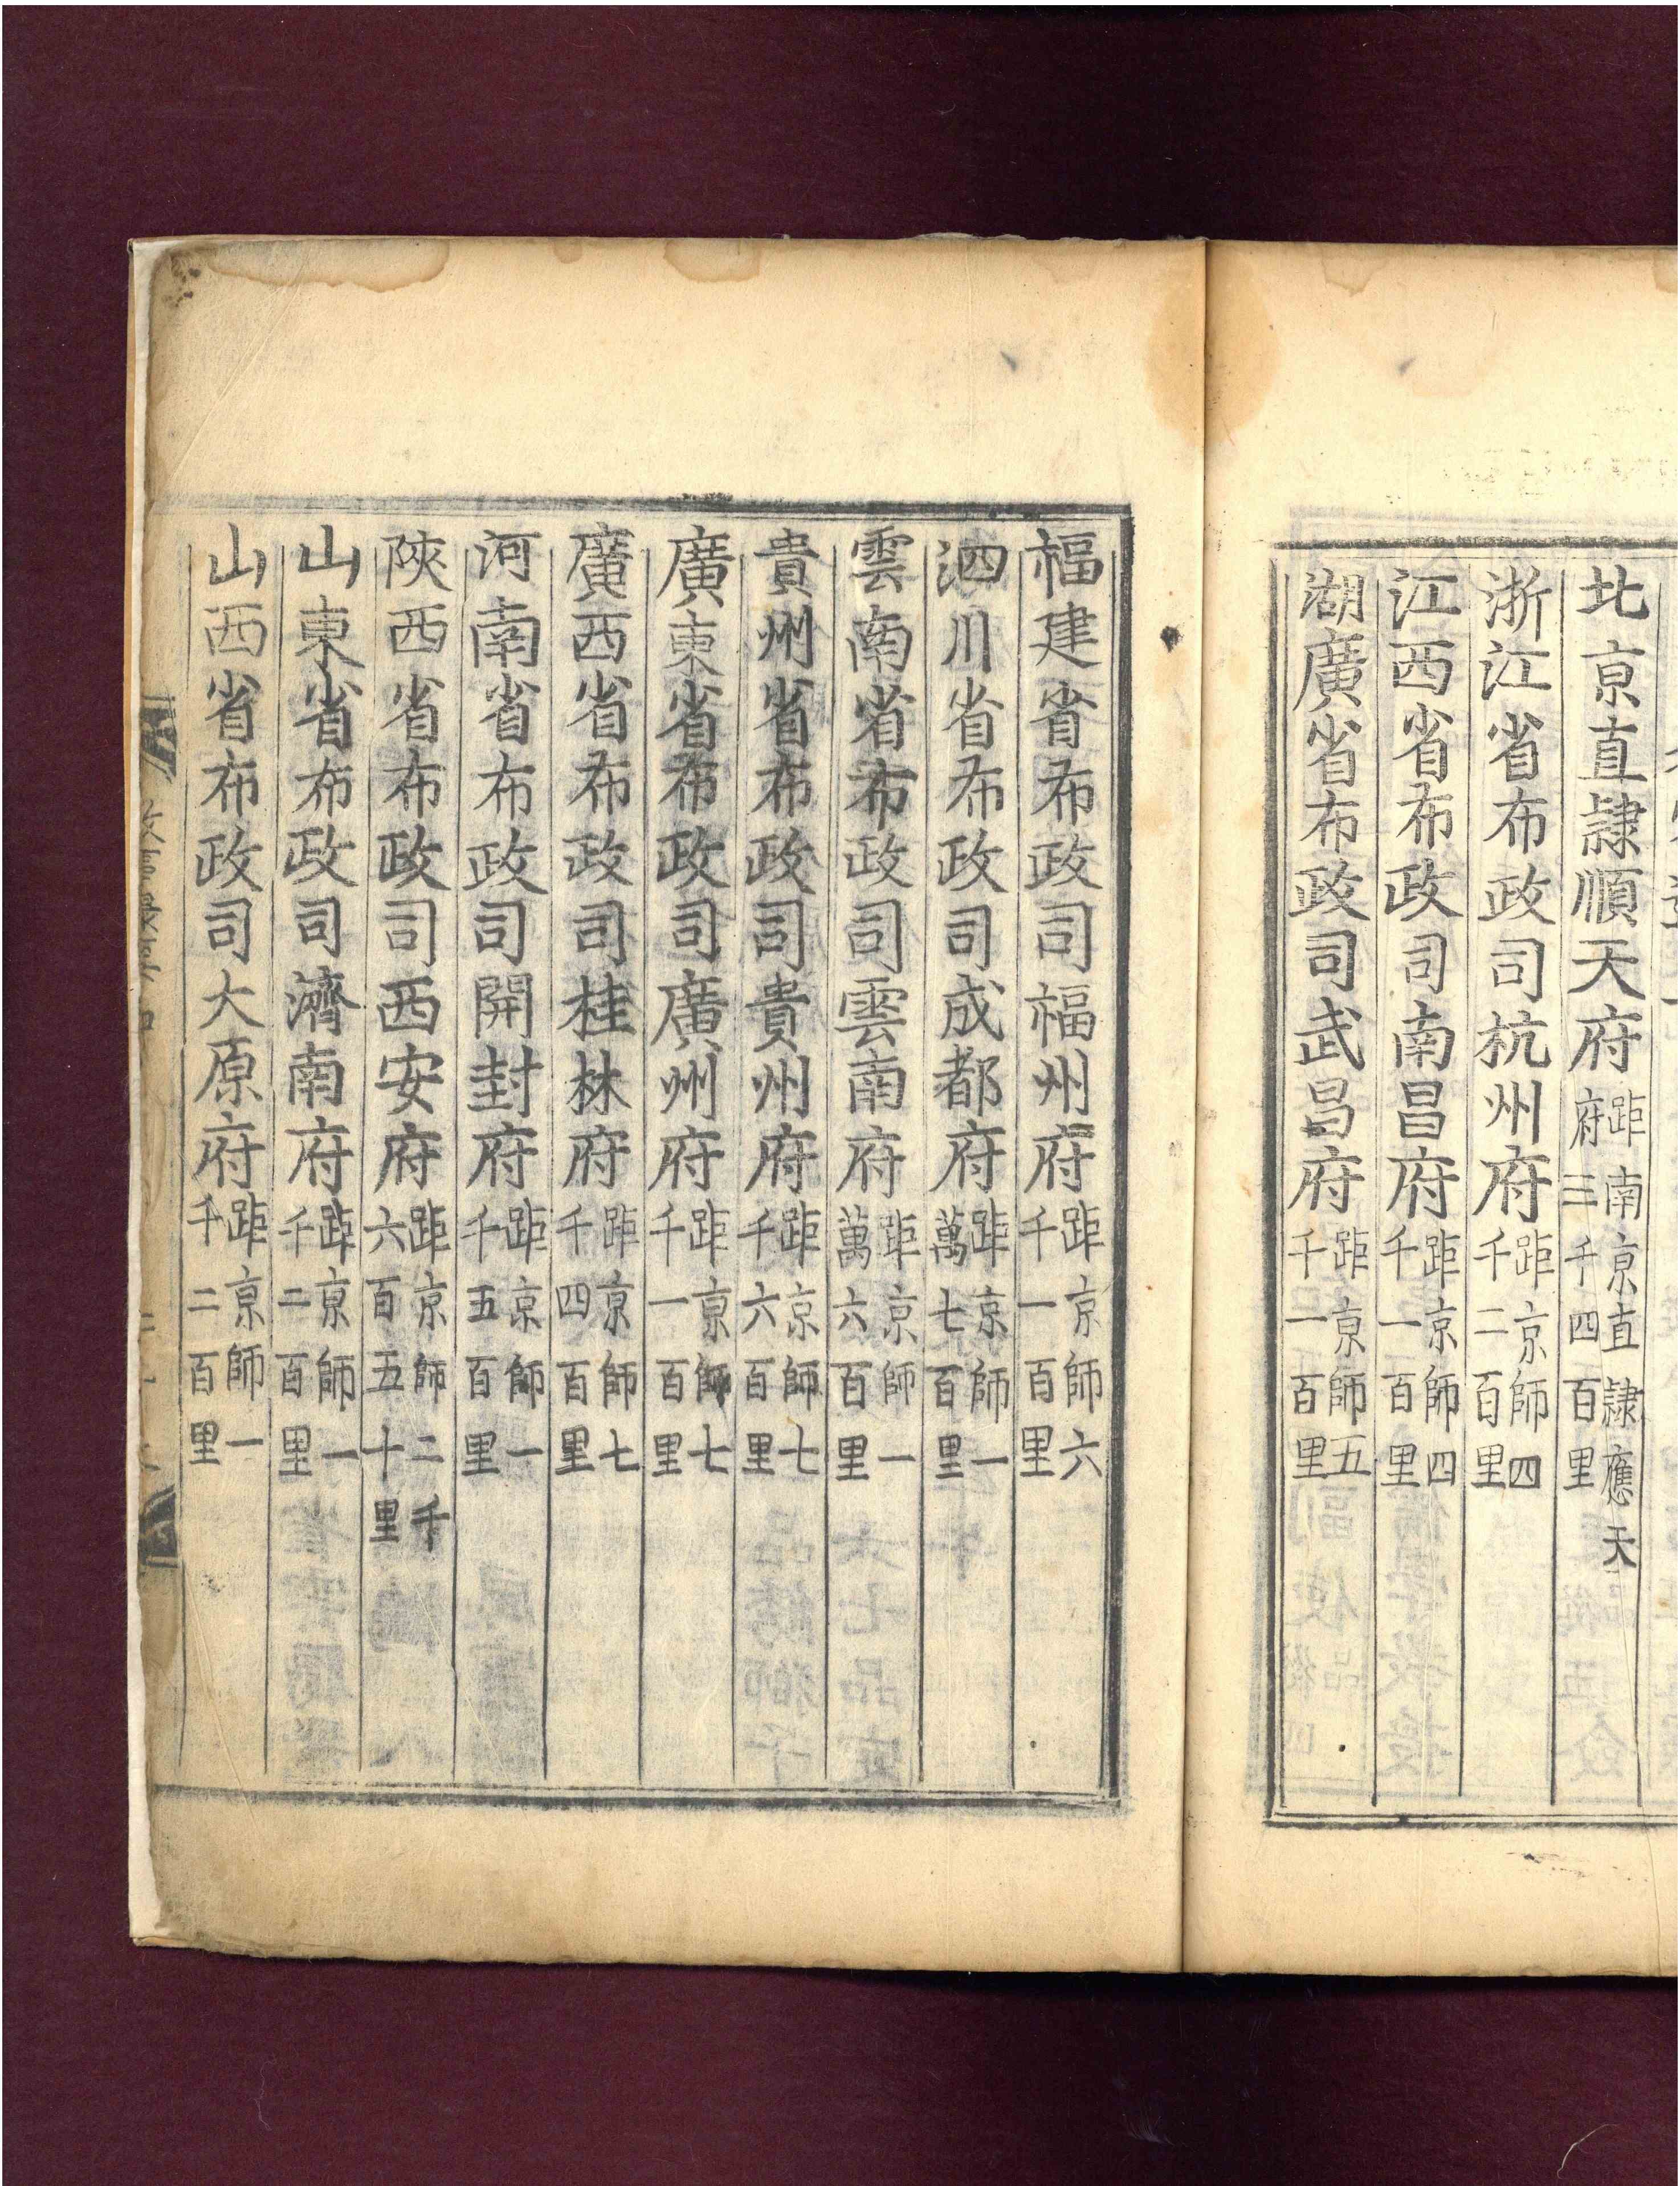 北京直隷順天府距南京直隷應天府三千四百里
浙江省布政司杭州府距京師四千二百里
江西省布政司南昌府距京師四千一百里
湖廣省布政司武昌府距京師五千一百里
福建省布政司福州府距京師六千一百里
泗川省布政司成都府距京師一萬七百里
雲南省布政司雲南府距京師一萬六百里
貴州省布政司貴州府距京師七千六百里
廣東省布政司廣州府距京師七千一百里
廣西省布政司桂林府距京師七千四百里
河南省布政司開封府距京師一千五百里
陝西省布政司西安府距京師二千六百五十里
山東省布政司濟南府距京師一千二百里
山西省布政司大原府距京師一千二百里